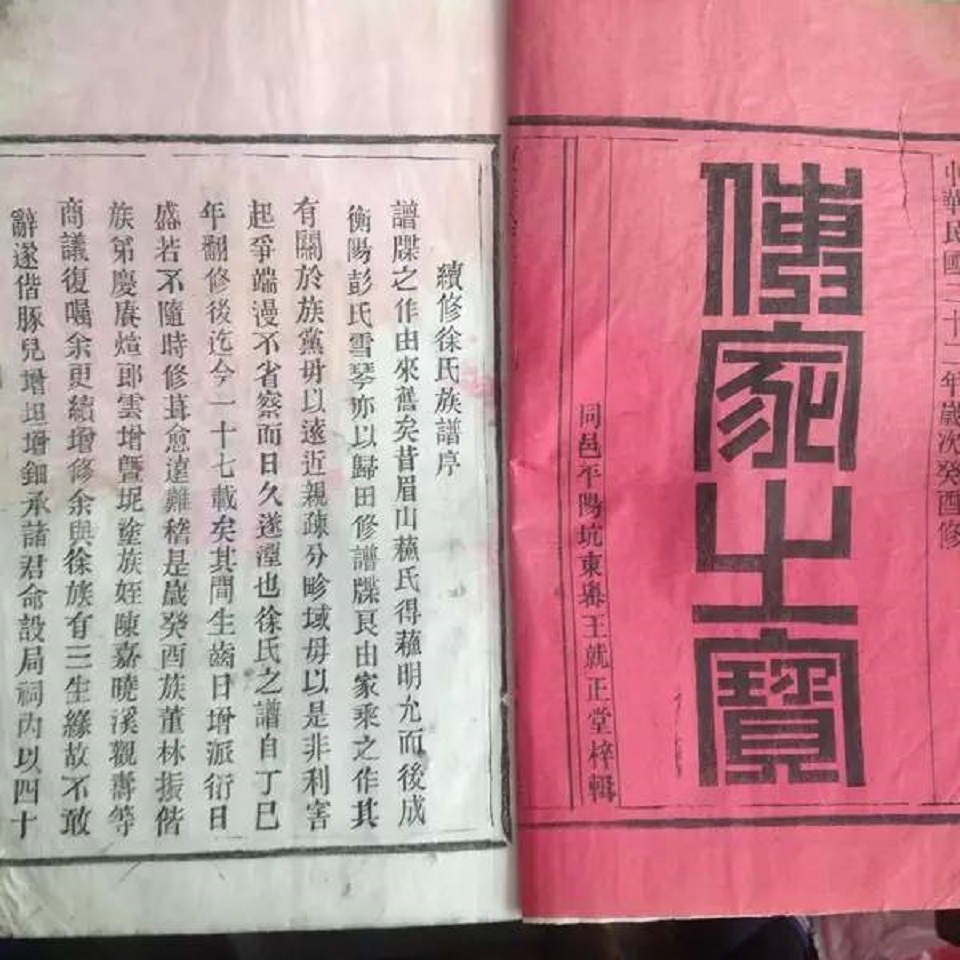 中華民國二十二年歲次癸酉修
傳家之寶
同邑平陽坑東垟王就正堂梓輯
續修徐氏族譜序
譜牒之作由來舊矣昔眉山蘇氏得蘇明允而後成
衡陽彭氏雪琴亦以歸田修譜牒良由家乘之作其
有關於族黨毋以遠近親疎分畛域毋以是非利害
起爭端漫不省察而日久遂湮也徐氏之譜自丁巳
年翻修後迄今一十七載矣其間生齒日增派衍日
盛若不隨時修葺愈遠難稽是歲癸酉族董林振偕
族第慶賡煊郎雲增暨坭塗族姪陳嘉曉溪觀壽等
商議復囑余更續增修余與徐族有三生緣故不敢
辭遂偕豚兒增坦增鈿承諸君命設局祠內以四十